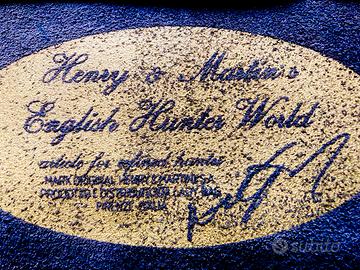 Henry & Martin's
English Hunter World
article for refined hunter
MARK ORIGINAL HENRY E MARTINES-A
PRODOTTO E DISTRIBUITO DA LAST. MAG
FIRENZE ITALIA
subito